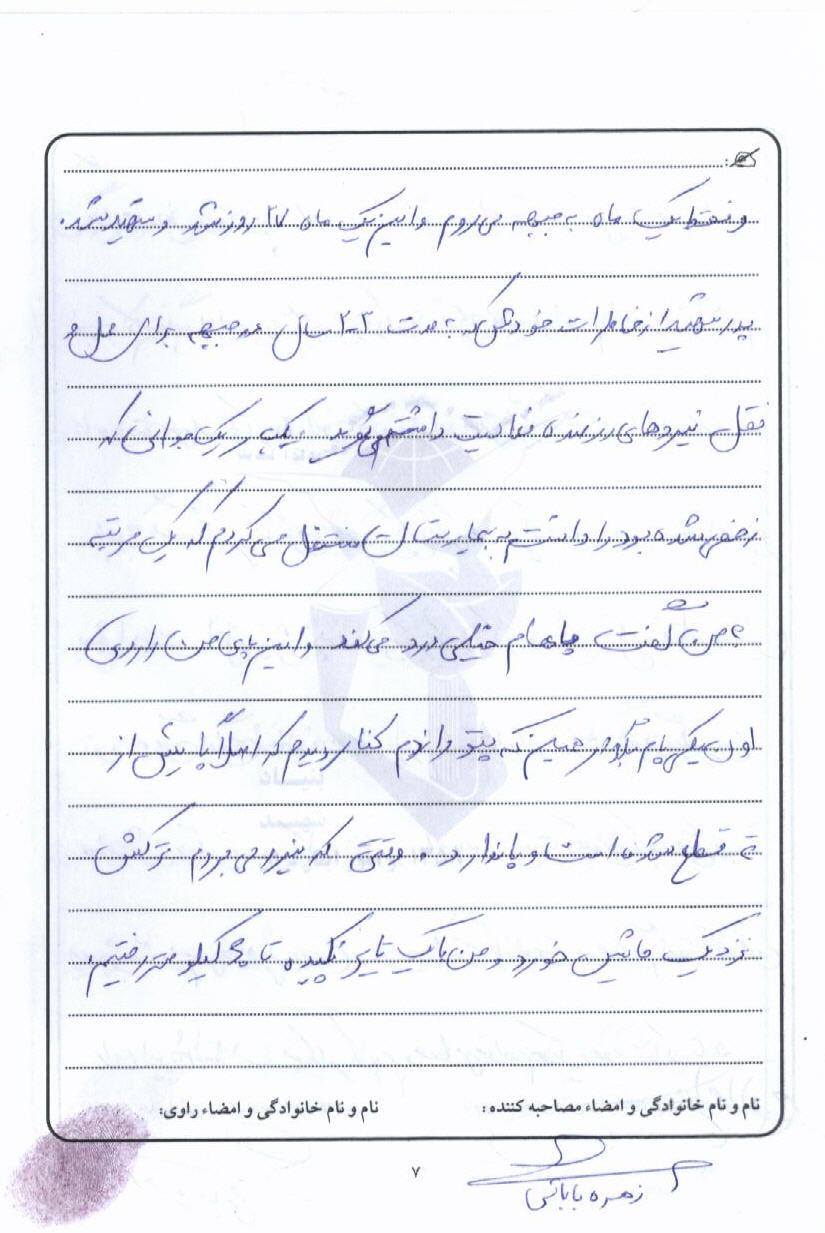 و فقط یک ماه به جبهه می روم و این یک ماه ۲۷ روز شد و شهید شد.
پدر شهید از خاطرات خودش که به مدت ۳-۲ سال در جبهه برای حمل و
نقل نیروهای رزمنده فعالیت داشتم می گوید یکبار یک جوانی که
زخمی شده بود را داشتم به بیمارستان منتقل می کردم که یک مرتبه
به من گفت پاهام خیلی درد می کند و این پای من را روی
اون یکی پام بگذار همین که پتو را زدم کنار دیدم که اصلاً پایش از
ته قطع شده است و پا ندارد. وقتی که نیرو می بردم ترکش
نزدیک ماشین خورد و من با یک تایر ترکیده تا کیلومتر رفتیم.
نام و نام خانوادگی و امضاء مصاحبه کننده : نام و نام خانوادگی و امضاء راوی:
زهره بابائی
۷